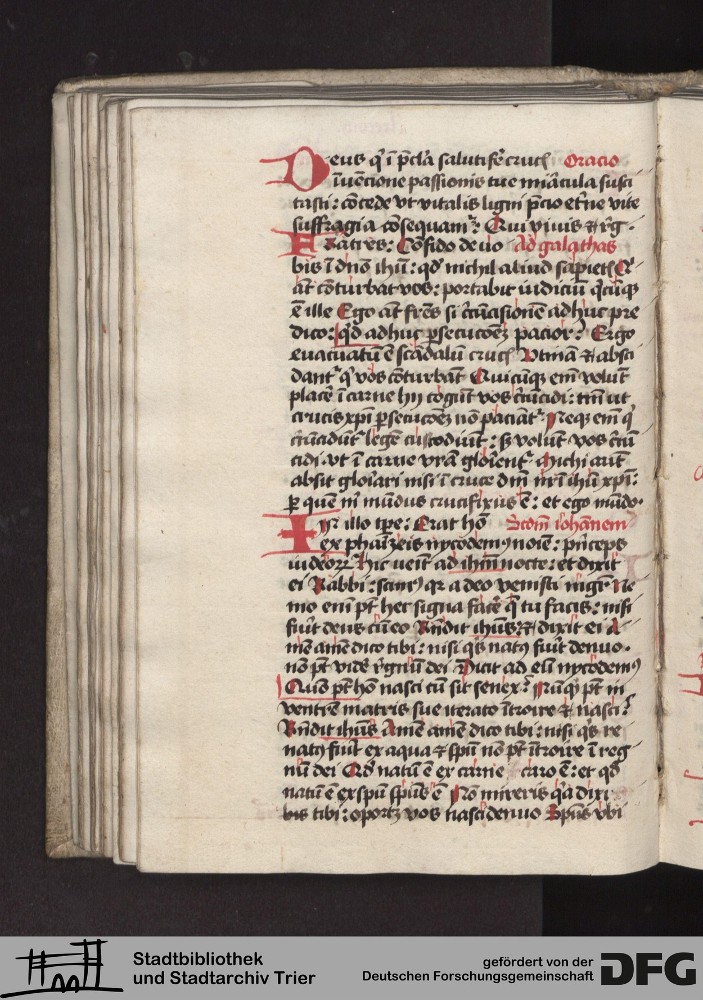 Deus qͥ ī p̄cla̅ salutife̅ cruc̄ Oracio
īue̅cione passionis tue mira̅cula susci
tasti : co̅cede vt vitalis ligni p̄cio et̄ne vite
suffragia co̅sequamr̄ : Qui viuis & rēg .
Fratres : Co̅fido de uo Ad galathas
bis ī dn̄o ihū : qd̄ nichil aliud sapietis Qͥ
āt co̅turbat vos : portabit iudiciū q̄cūq̨
ē ille Ego āt fr̄es si cͥrcu̅cisione̅ adhuc pre
dico : qͥd adhuc ꝑsecuco̅ez pacior ? Ergo
euacuatū ē sca̅dalū cruc̄ Vtina̅ & absci
dantr̄ qͥ vos co̅turbāt Quicūq̨ em̄ volūt
plac̄e ī carne hy cogūt vos cͥrcūcidi : tm̄ ut
crucis xp̄i ꝑsecuco̅ez no̅ paciātr̄ Neq̨ em̄ qͥ
cͥrcūcidūtr̄ lege̅ custodiūt : sz volūt vos cͥrcū
cidi vt ī carne vr̄a glo̅ientr̄ Michi aut̄
absit glo̅iari nisi ī cruce dn̄i nr̄i ihū xp̄i :
ꝑ que̅ m̄ mūdus crucifixus ē : et ego mūdo .
In illo tp̄e : Erat ho̅ Scdm̄ Ioha̅nem
ex pha̅izeis nycodemꝰ noīe : p̄nceps
iudeor̄ Hic uenit ad ihm̄ nocte : et dixit
ei Rabbi : scimꝰ qͥa a deo venisti mgr̄ Ne
mo em̄ pt̄ hec signa fac̄e q̄ tu facis : nisi
fu̅it deus cū eo Rn̄dit ihūs & dixit ei A
me̅ ame̅ dico tibi : nisi qͥs natꝰ fu̅it denuo .
no̅ pt̄ vide̅ re̅gnū dei Dicit ad eū nycodemꝰ
Quō pt̄ ho̅ nasci cū sit senex ? Nūqͥd pt̄ in
ventre̅ matris sue iterato ītroire & nasci ?
Rn̄dit ihūs Ame̅ ame̅ dico tibi : nisi qͥs re
natꝰ fu̅it ex aqua & spū no̅ pt̄ ītroire ī reg
nū dei Qd̄ natū ē ex carne caro ē : et qd̄
natū ē ex spū spūs ē No̅ mireris qͥa dixi
bis tibi : oportz vos nasci denuo Spūs vbi
Stadtbibliothek
und Stadtarchiv Trier
gefördert von der
Deutschen Forschungsgemeinschaft
DFG